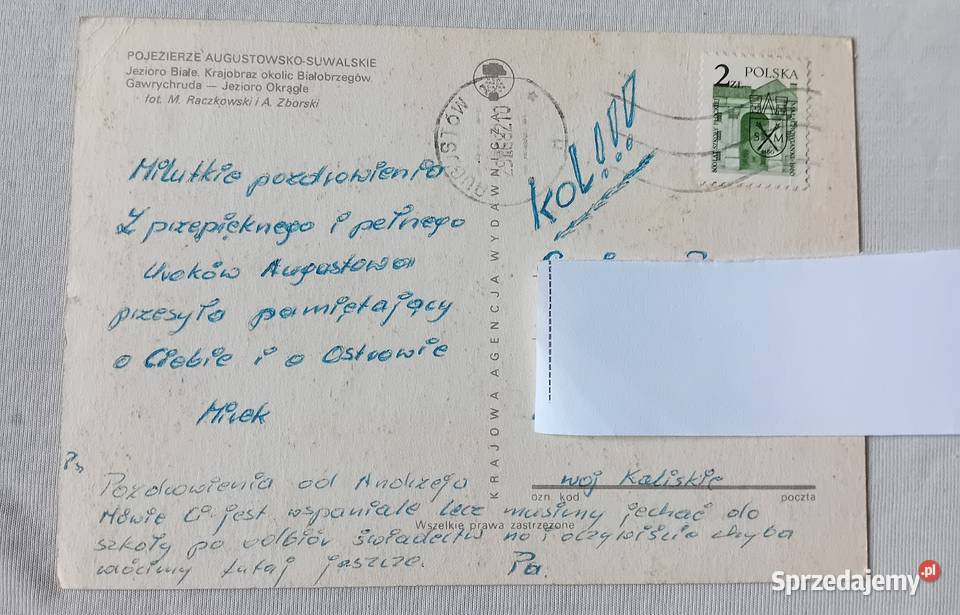 POJEZIERZE AUGUSTOWSKO-SUWALSKIE
Jezioro Białe. Krajobraz okolic Białobrzegów.
Gawrychruda — Jezioro Okrągłe
fot. M. Raczkowski i A. Zborski
Milutkie pozdrowienia
Z przepięknego i pełnego
Uroków Augustowa
przesyła pamiętający
o Ciebie i o Ostrowie
Mirek
Ps
Pozdrowienia od Andrzeja
Mówię Ci jest wspaniale lecz musimy jechać do
szkoły po odbiór świadectw no i oczywiście chyba
wrócimy tutaj jeszcze. Pa.
KRAJOWA AGENCJA WYDAWNICZA
AUGUSTÓW
2 ZŁ POLSKA
S M
kol!!!!
woj Kaliskie
ozn. kod poczta
Wszelkie prawa zastrzeżone
Sprzedajemy.pl